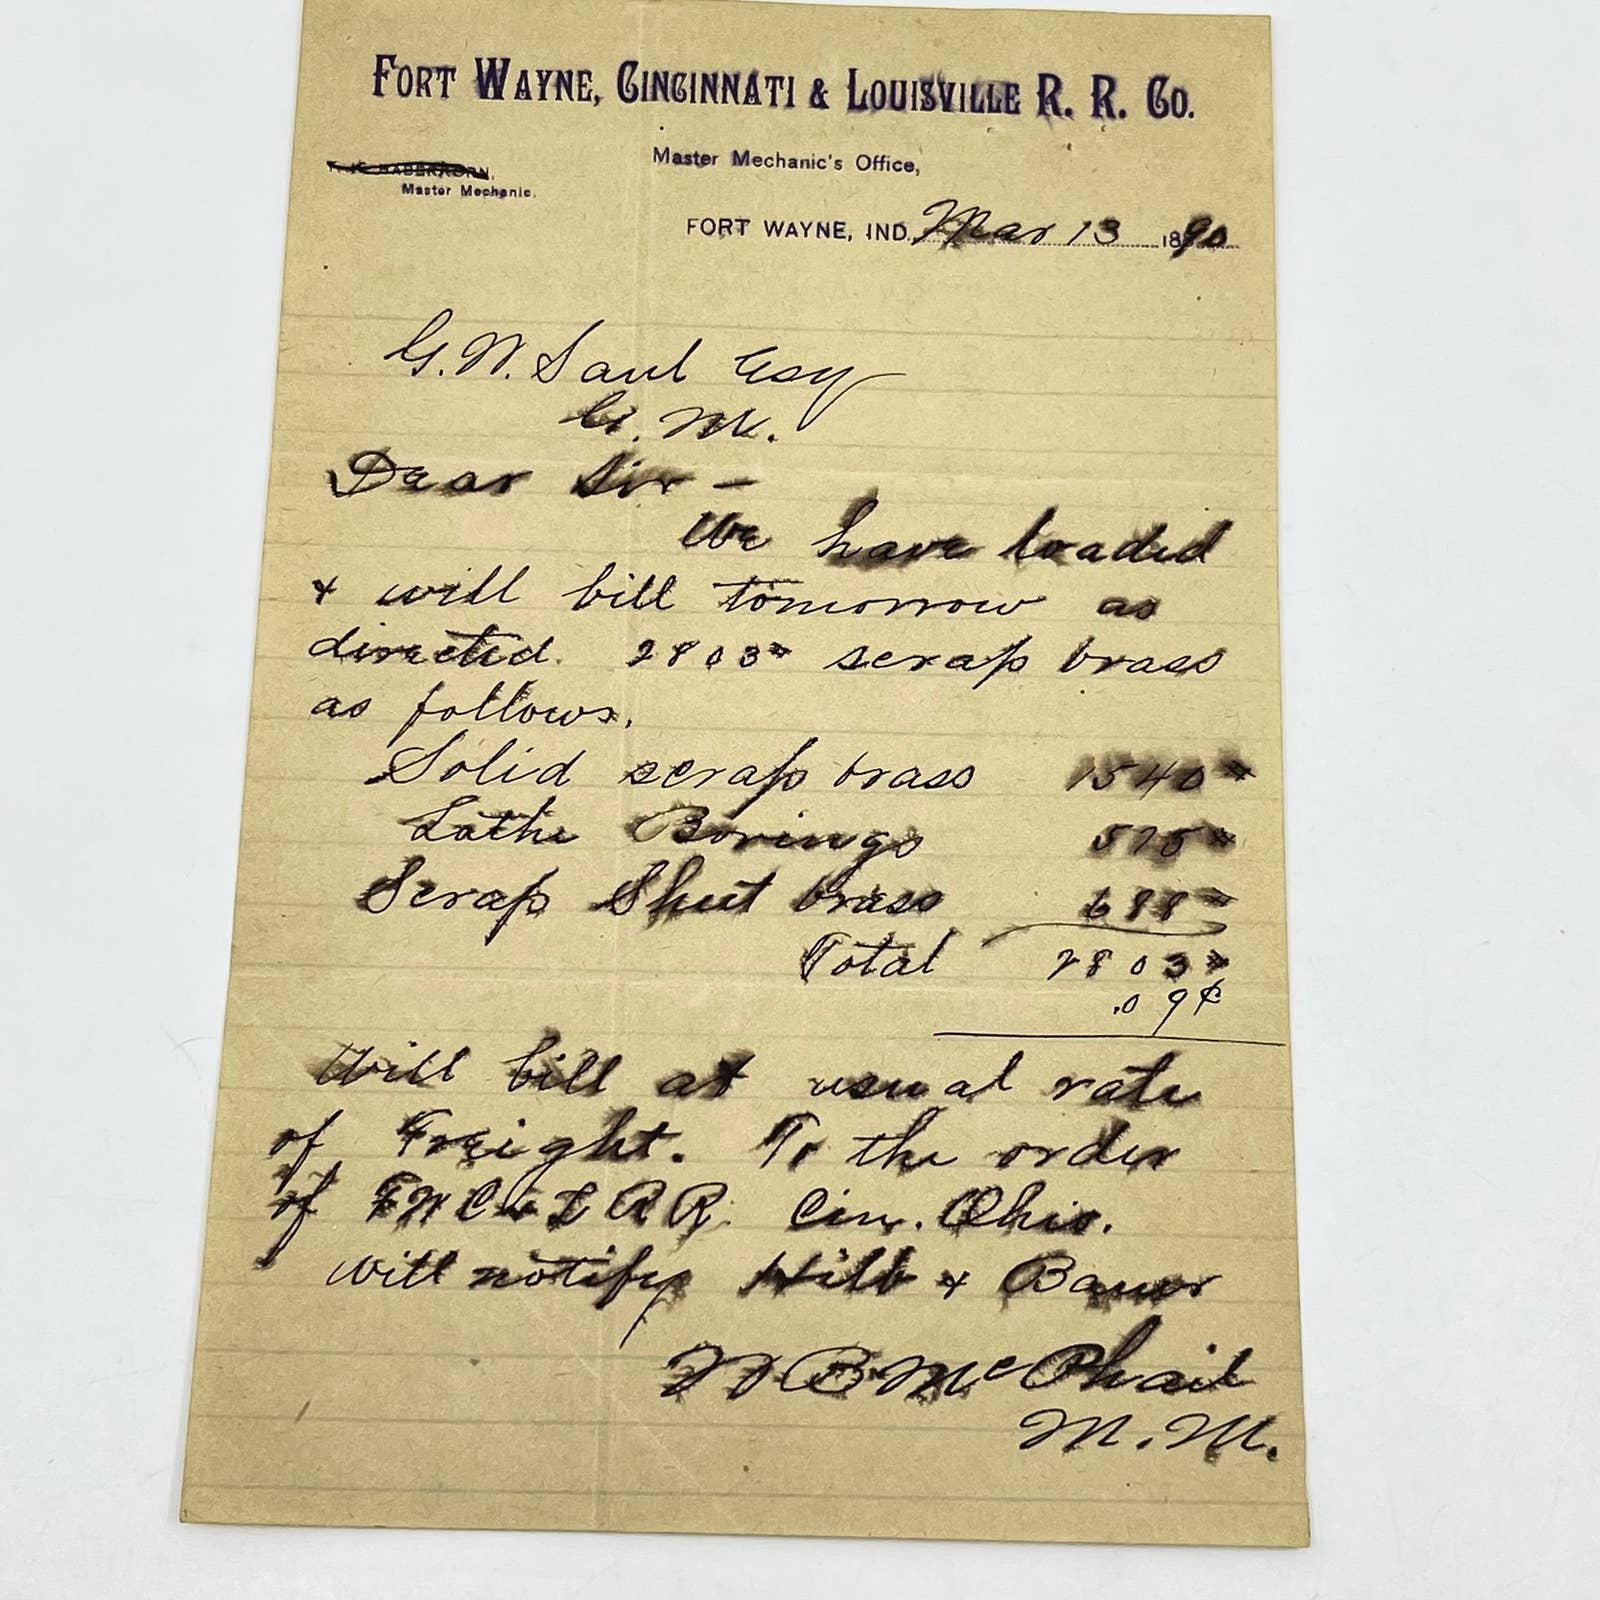 FORT WAYNE, CINCINNATI & LOUISVILLE R. R. CO.
Master Mechanic's Office,
HABERKORN,
Master Mechanic.
FORT WAYNE, IND. Mar 13 1890
G. W. Saul Esq
G. M.
Dear Sir -
We have loaded
& will bill tomorrow as
directed. 2803# scrap brass
as follows.
Solid scrap brass 1540#
Lathe Borings 575#
Scrap Sheet brass 688#
Total 2803#
.09¢
Will bill at usual rate
of Freight. To the order
of FW C & L RR. Cin. Ohio.
will notify Hilb & Bauer
W B McPhail
M. M.